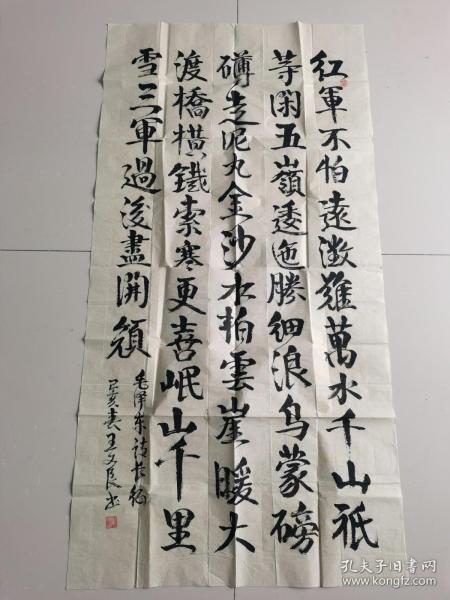 红軍不怕遠徵難萬水千山祇
等閑五嶺逶迤騰細浪烏蒙磅
礴走泥丸金沙水拍雲崖暖大
渡橋橫鐵索寒更喜岷山千里
雪三軍過後盡開顏
毛泽东詩长征
己亥春王文良书
孔夫子旧书网
www.kongfz.com